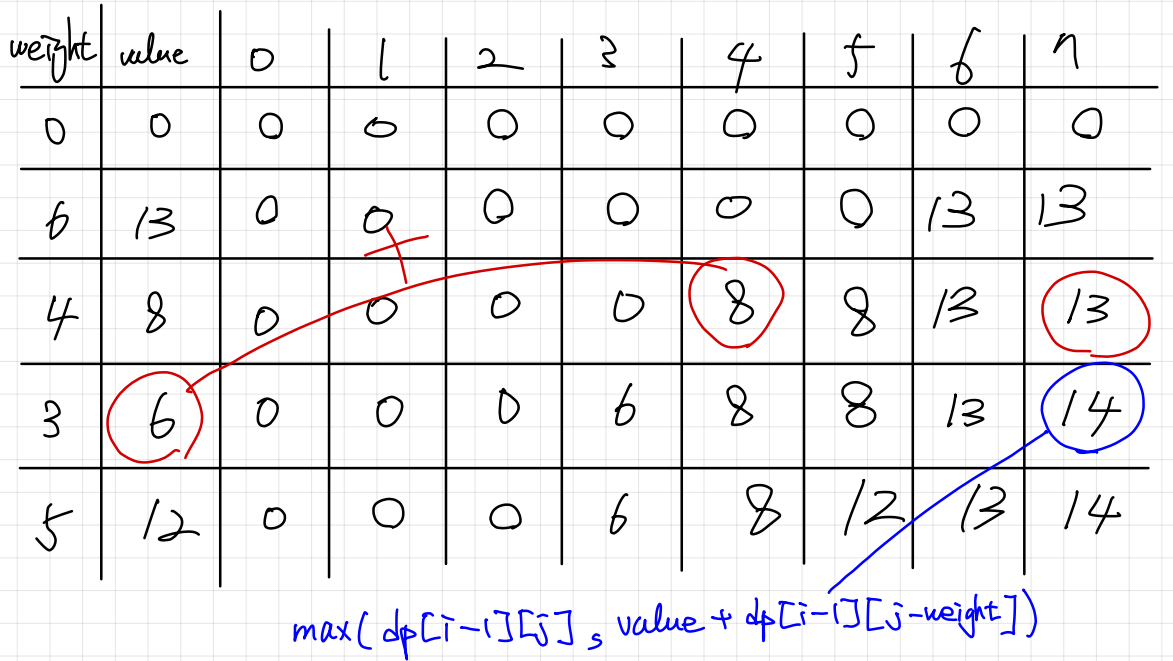 weight value 0 1 2 3 4 5 6 7
0 0 0 0 0 0 0 0 0 0
6 13 0 0 0 0 0 0 13 13
4 8 0 0 0 0 8 8 13 13
3 6 0 0 0 6 8 8 13 14
5 12 0 0 0 6 8 12 13 14
max(dp[i-1][j], value + dp[i-1][j-weight])